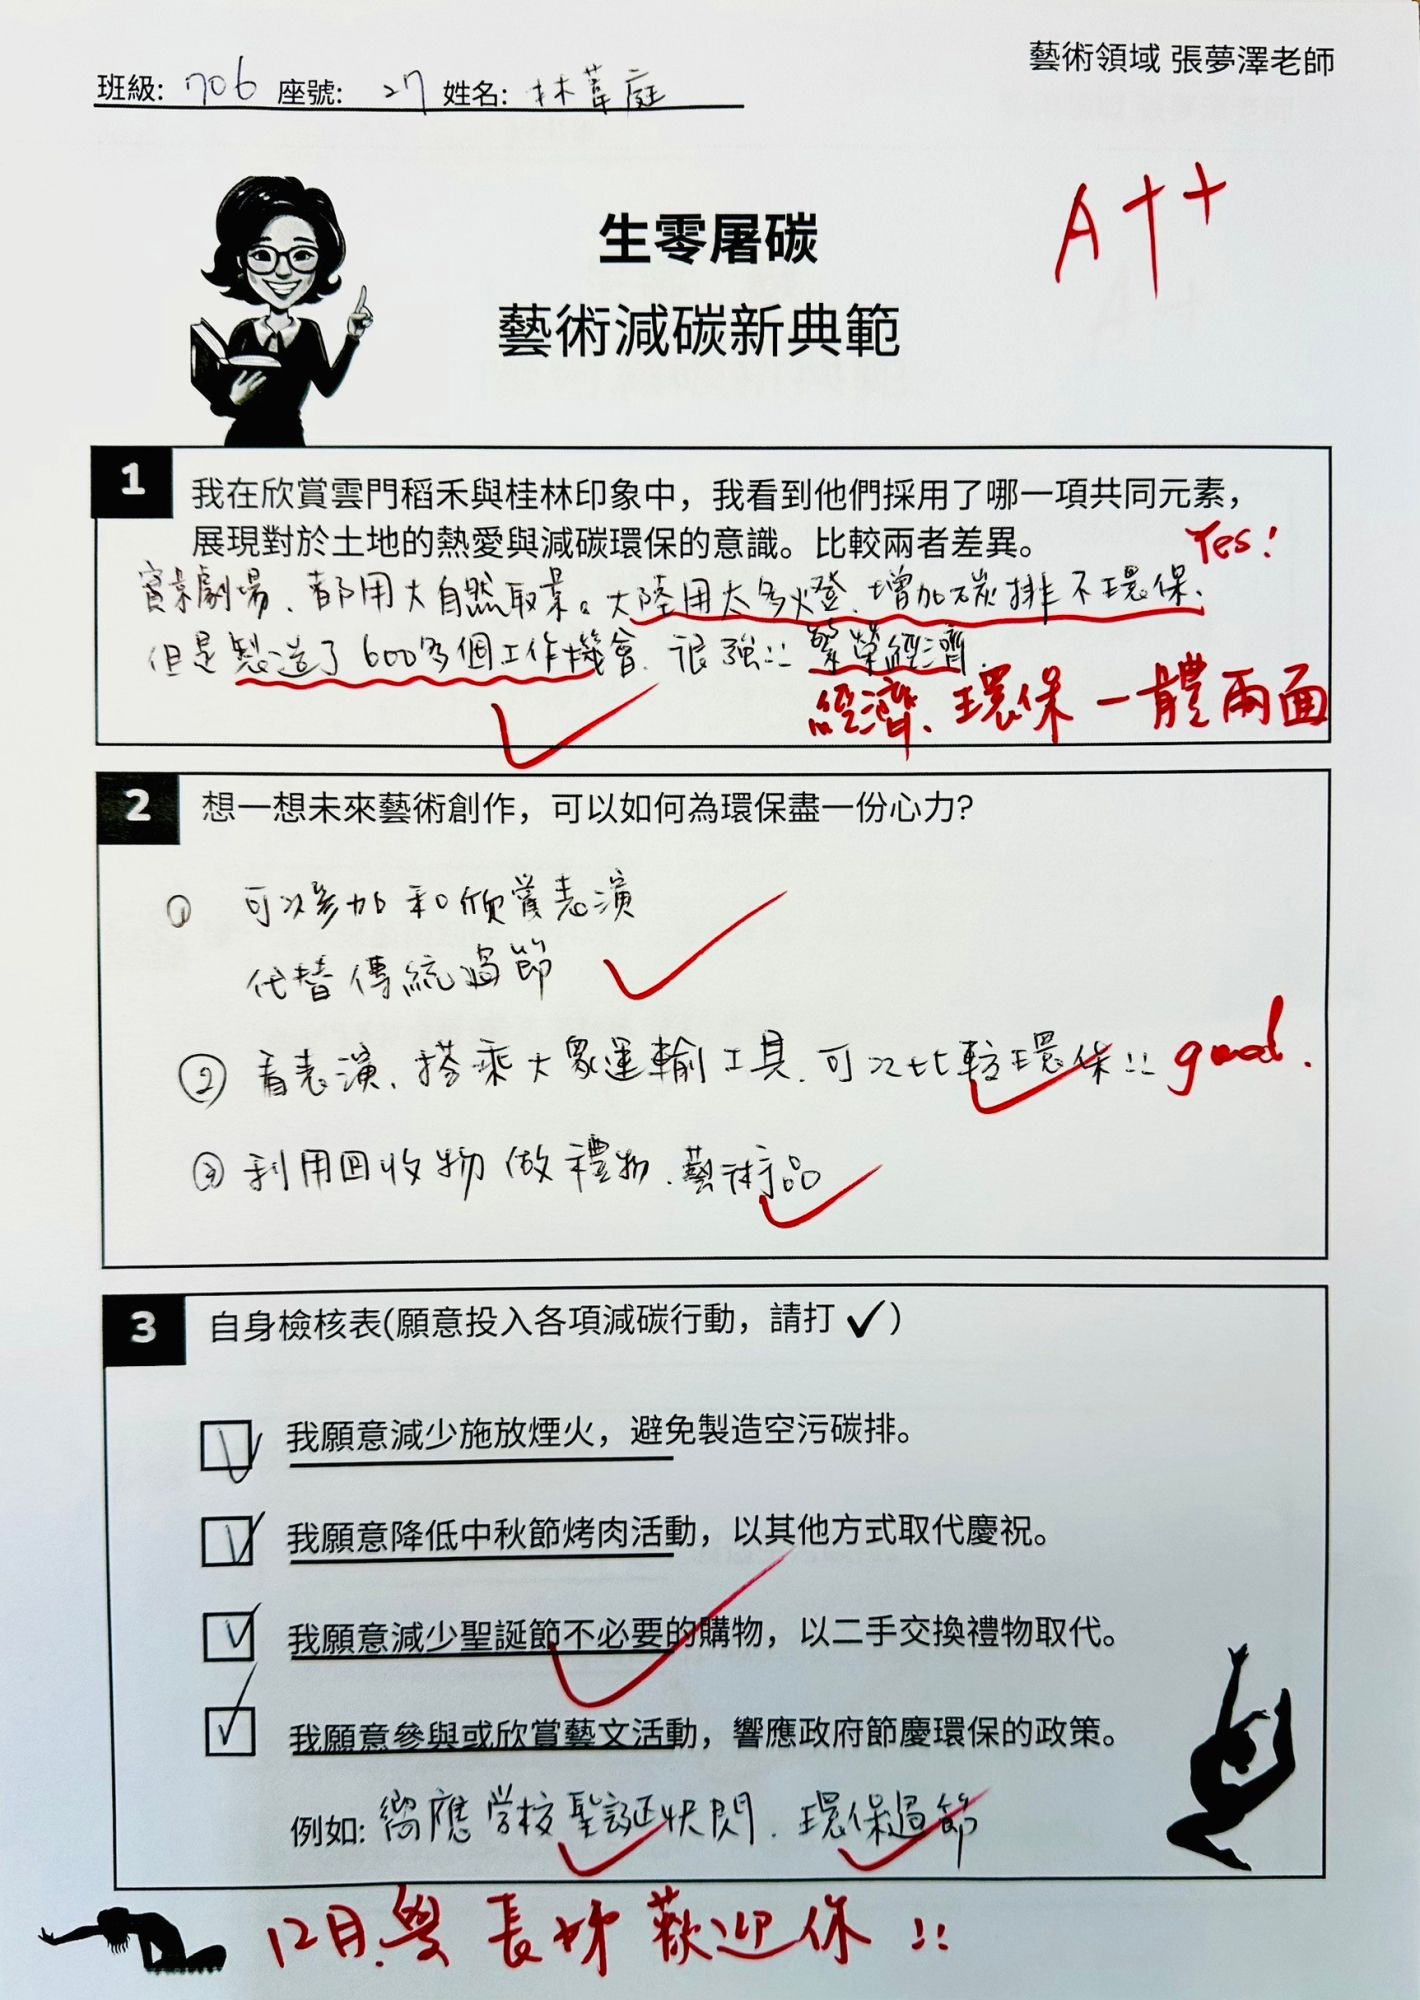 藝術領域 張夢澤老師
班級: 706 座號: 27 姓名: 林葦庭
A++
生零屠碳
藝術減碳新典範
1
我在欣賞雲門稻禾與桂林印象中，我看到他們採用了哪一項共同元素，
展現對於土地的熱愛與減碳環保的意識。比較兩者差異。
Yes!
實景劇場、都用大自然取景。大陸用太多燈、增加碳排不環保、
但是製造了600多個工作機會、很強!! 繁榮經濟.
經濟、環保一體兩面
2
想一想未來藝術創作，可以如何為環保盡一份心力?
① 可以參加和欣賞表演
代替傳統過節
② 看表演、搭乘大眾運輸工具、可以比較環保!! good.
③ 利用回收物做禮物、藝術品
3
自身檢核表(願意投入各項減碳行動，請打✓)
我願意減少施放煙火，避免製造空污碳排。
我願意降低中秋節烤肉活動，以其他方式取代慶祝。
我願意減少聖誕節不必要的購物，以二手交換禮物取代。
我願意參與或欣賞藝文活動，響應政府節慶環保的政策。
例如: 響應学校聖誕快閃、環保過節
12月與長姊歡迎你!!